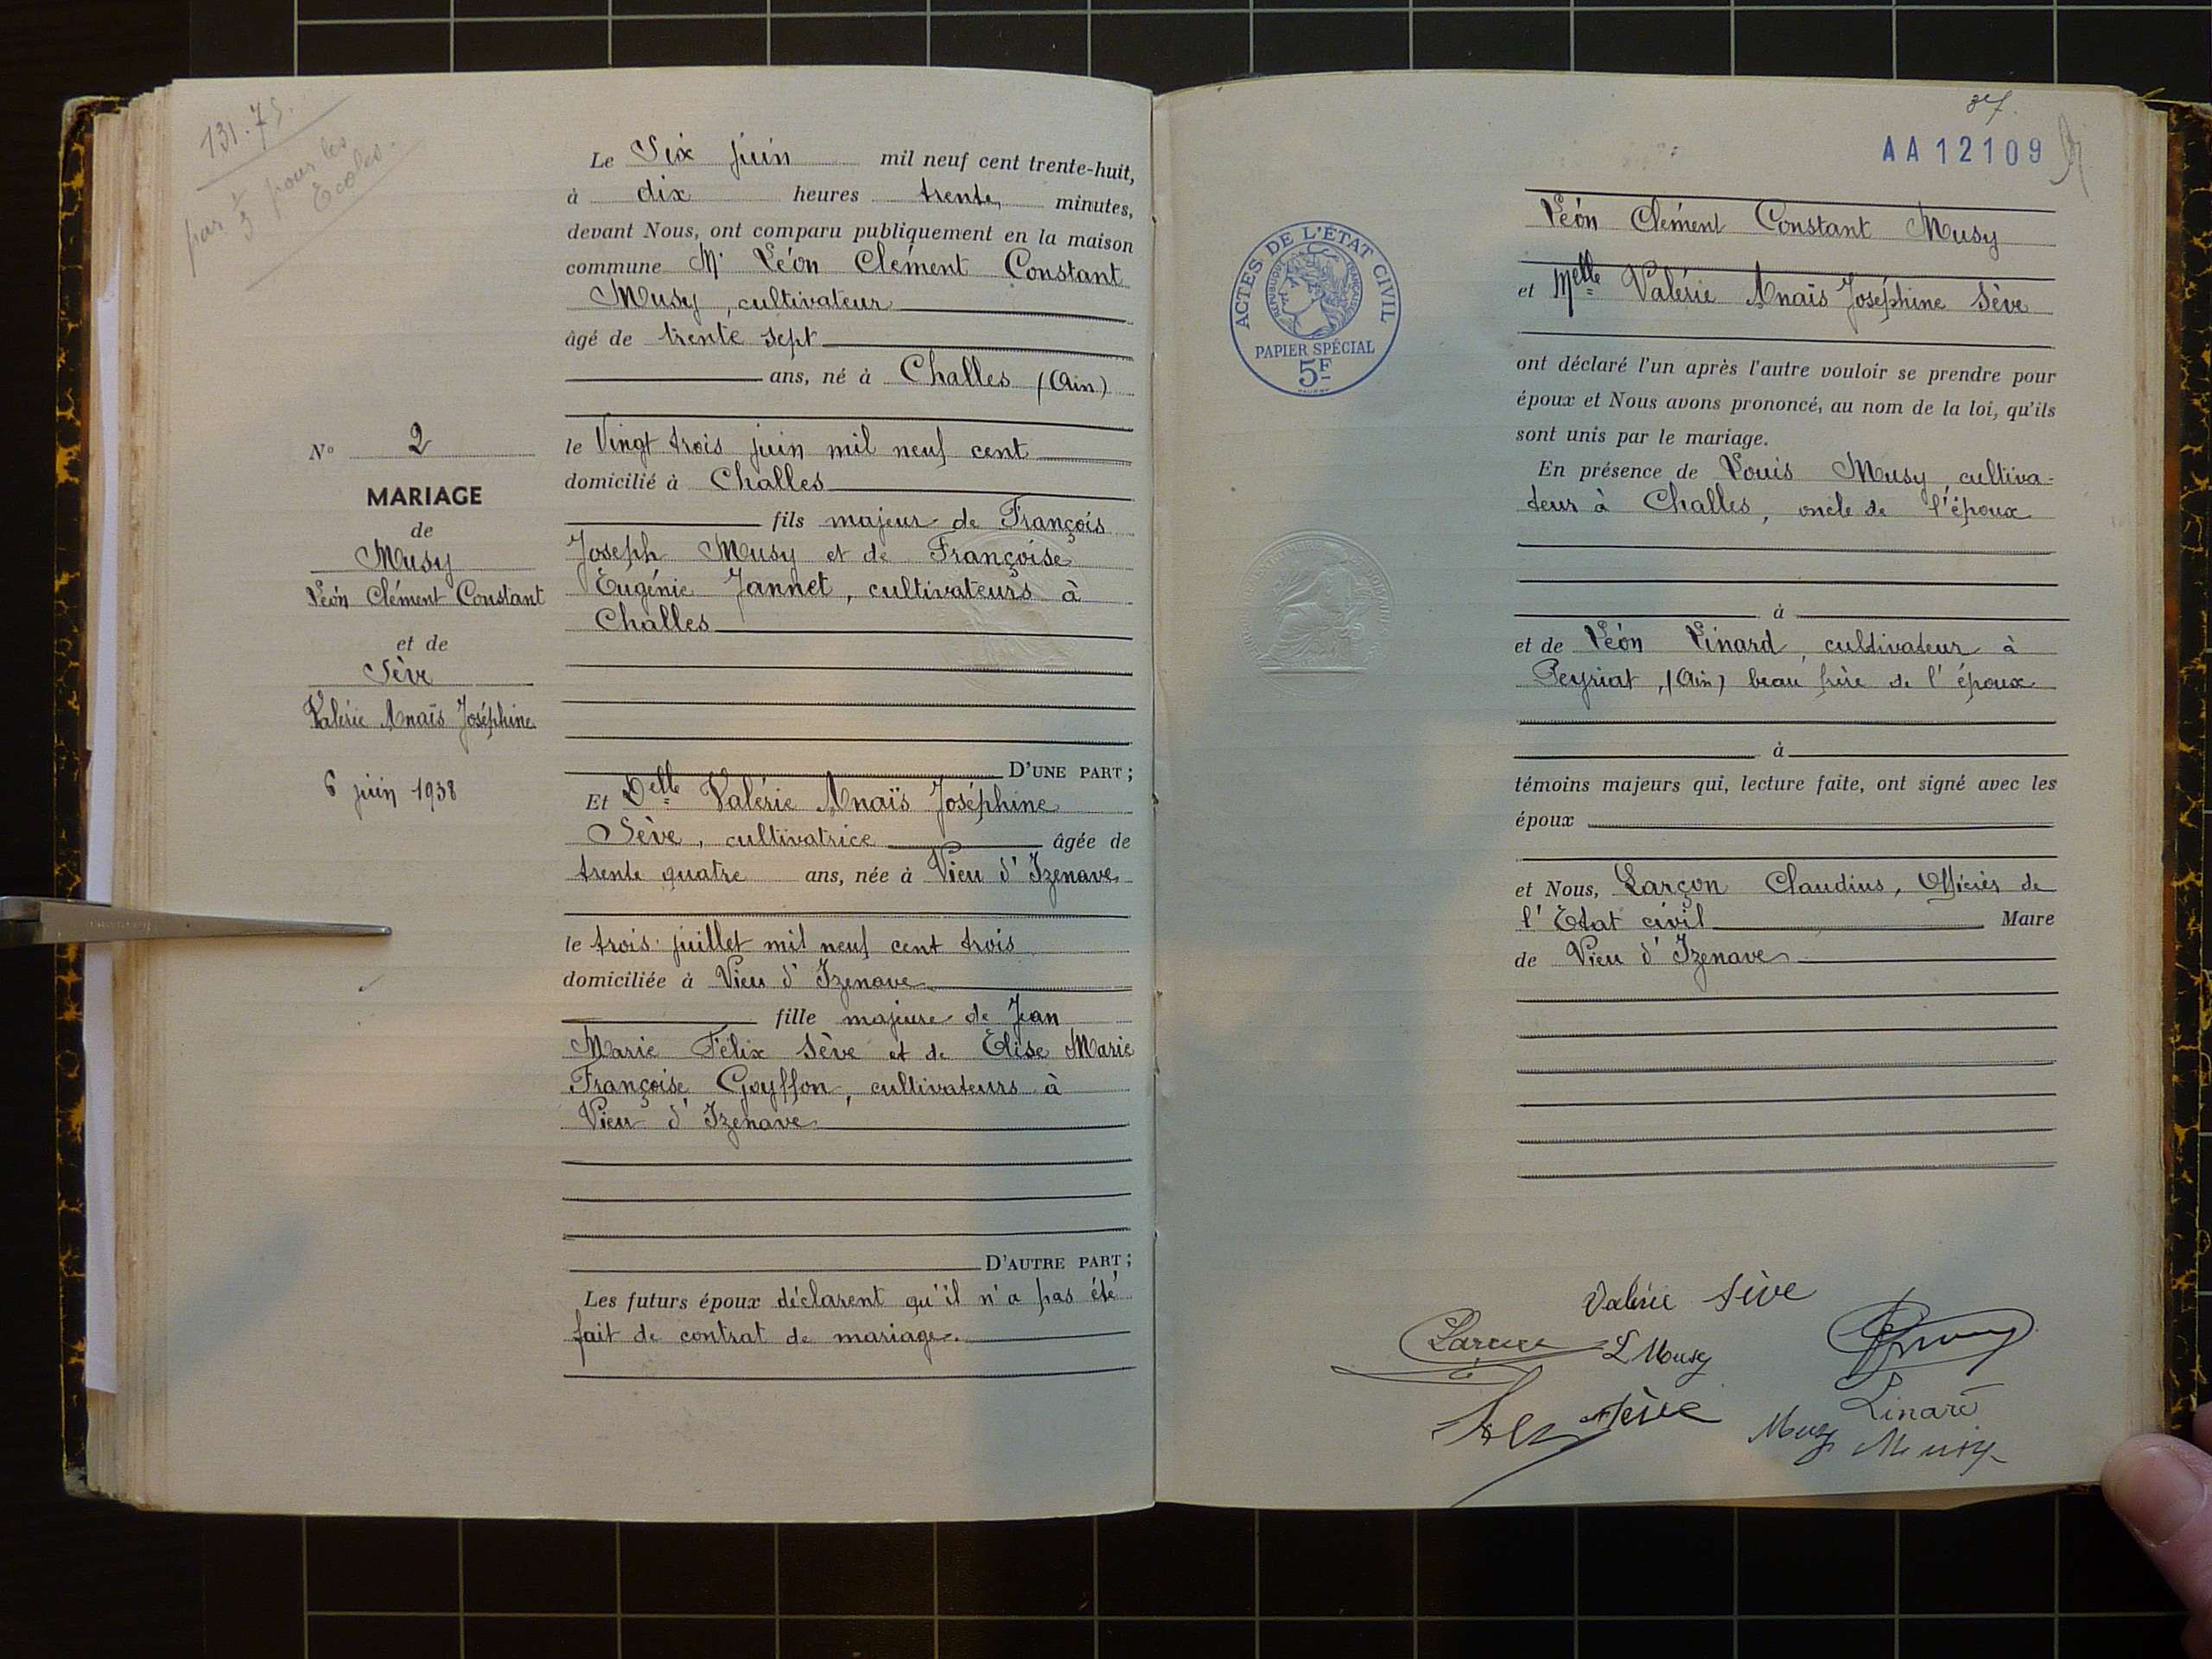 131.75.
par 1/3 pour les
Ecoles.
Le Six juin mil neuf cent trente-huit,
à dix heures trente minutes,
devant Nous, ont comparu publiquement en la maison
commune Mr Léon Clément Constant
Musy, cultivateur
âgé de trente sept
ans, né à Challes (Ain)
le Vingt trois juin mil neuf cent
domicilié à Challes
fils majeur de François
Joseph Musy et de Françoise
Eugénie Jannet, cultivateurs à
Challes
D'UNE PART;
Et Delle Valérie Anaïs Joséphine
Sève, cultivatrice âgée de
trente quatre ans, née à Vieu d'Izenave
le trois juillet mil neuf cent trois
domiciliée à Vieu d'Izenave
fille majeure de Jean
Marie Félix Sève et de Elise Marie
Françoise Goyffon, cultivateurs à
Vieu d'Izenave
D'AUTRE PART;
Les futurs époux déclarent qu'il n'a pas été
fait de contrat de mariage.
No 2
MARIAGE
de
Musy
Léon Clément Constant
et de
Sève
Valérie Anaïs Joséphine
6 juin 1938
37.
AA12109
ACTES DE L'ÉTAT CIVIL
RÉPUBLIQUE FRANÇAISE
PAPIER SPÉCIAL
5F
Léon Clément Constant Musy
et Melle Valérie Anaïs Joséphine Sève
ont déclaré l'un après l'autre vouloir se prendre pour
époux et Nous avons prononcé, au nom de la loi, qu'ils
sont unis par le mariage.
En présence de Louis Musy, cultiva-
teur à Challes, oncle de l'époux
à
et de Léon Linard, cultivateur à
Peyriat, (Ain) beau frère de l'époux
à
témoins majeurs qui, lecture faite, ont signé avec les
époux
et Nous, Larçon Claudius, Officier de
l'Etat civil Maire
de Vieu d'Izenave
Valérie Sève
L Musy
Sève
Linard
Musy Musy